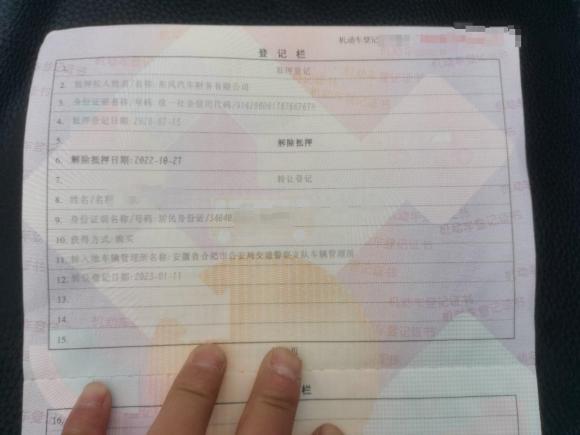 机动车登记
登记栏
1. 抵押登记
2. 抵押权人姓名/名称:东风汽车财务有限公司
3. 身份证明名称/号码:统一社会信用代码/
4. 抵押登记日期:
5. 解除抵押
6. 解除抵押日期:2022-10-27
7. 转让登记
8. 姓名/名称
9. 身份证明名称/号码:居民身份证/34040
10. 获得方式:购买
11. 转入地车辆管理所名称:安徽省合肥市公安局交通警察支队车辆管理所
12. 转让登记日期:2023-01-11
13.
14.
15.
栏
16.